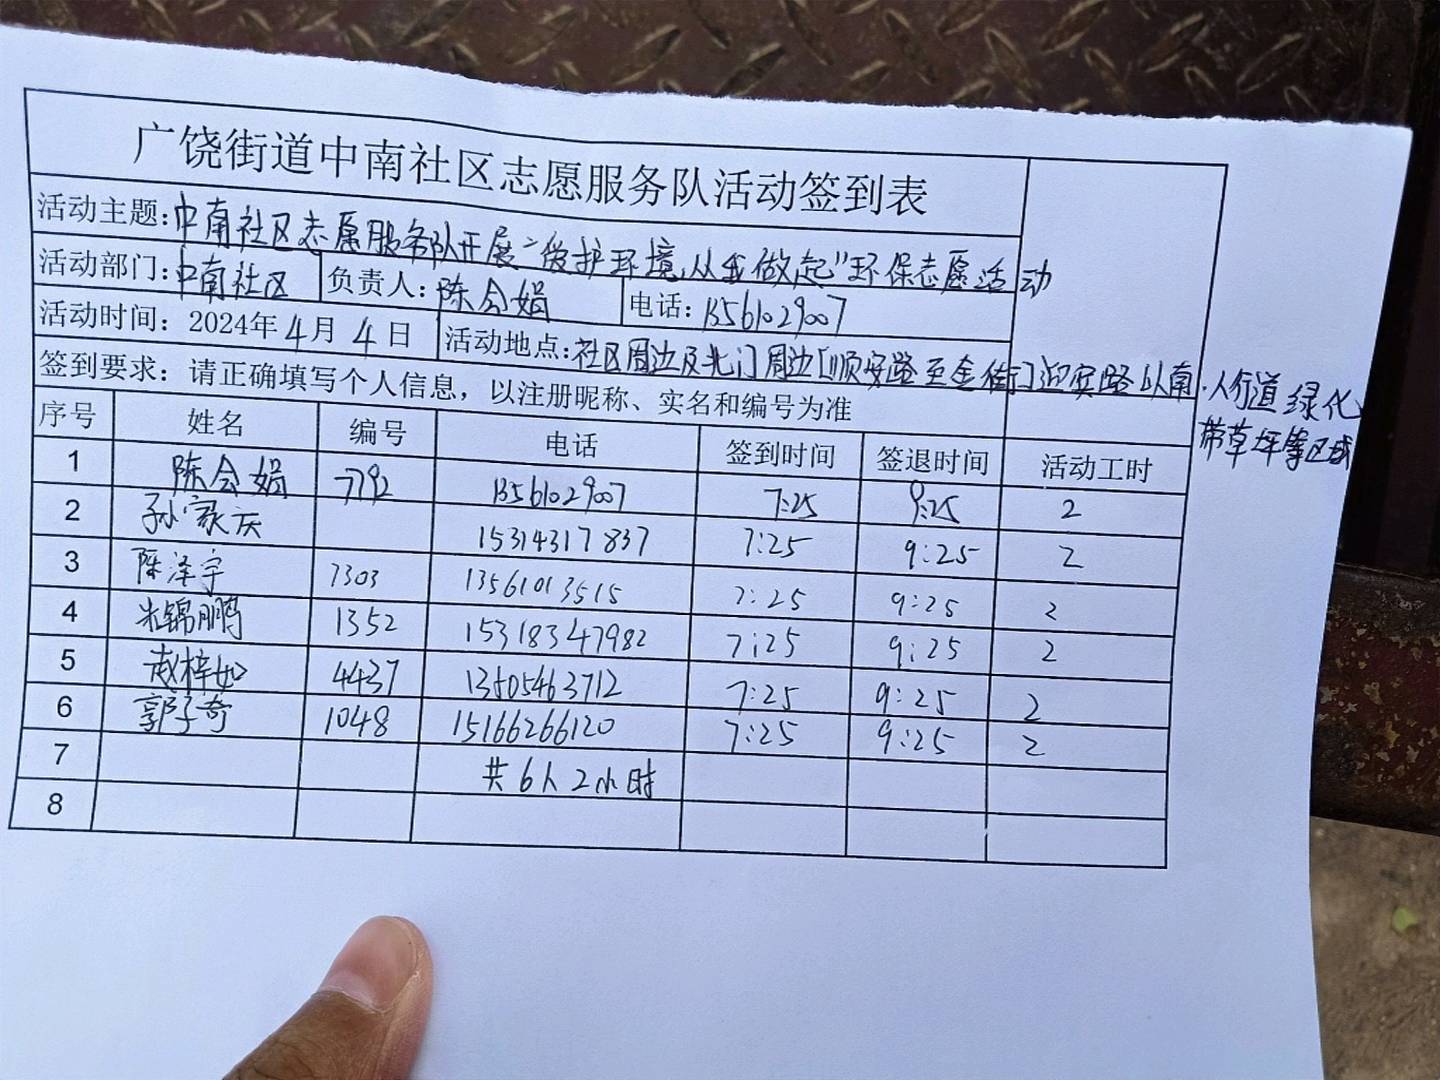 广饶街道中南社区志愿服务队活动签到表
活动主题:中南社区志愿服务队开展“爱护环境,从我做起”环保志愿活动
活动部门:中南社区 负责人:陈会娟 电话:13561029007
活动时间:2024年4月4日 活动地点:社区周边及北门周边[顺安路至金街]迎宾路以南.人行道绿化
带草坪等区域
签到要求:请正确填写个人信息,以注册昵称、实名和编号为准
序号 姓名 编号 电话 签到时间 签退时间 活动工时
1 陈会娟 7792 13561029007 7:25 9:25 2
2 孙家庆 15314317837 7:25 9:25 2
3 陈泽宇 7303 13561013515 7:25 9:25 2
4 朱锦鹏 1352 15318347982 7:25 9:25 2
5 赵梓如 4437 13505463712 7:25 9:25 2
6 郭子奇 1048 15166266120 7:25 9:25 2
7 共6人2小时
8